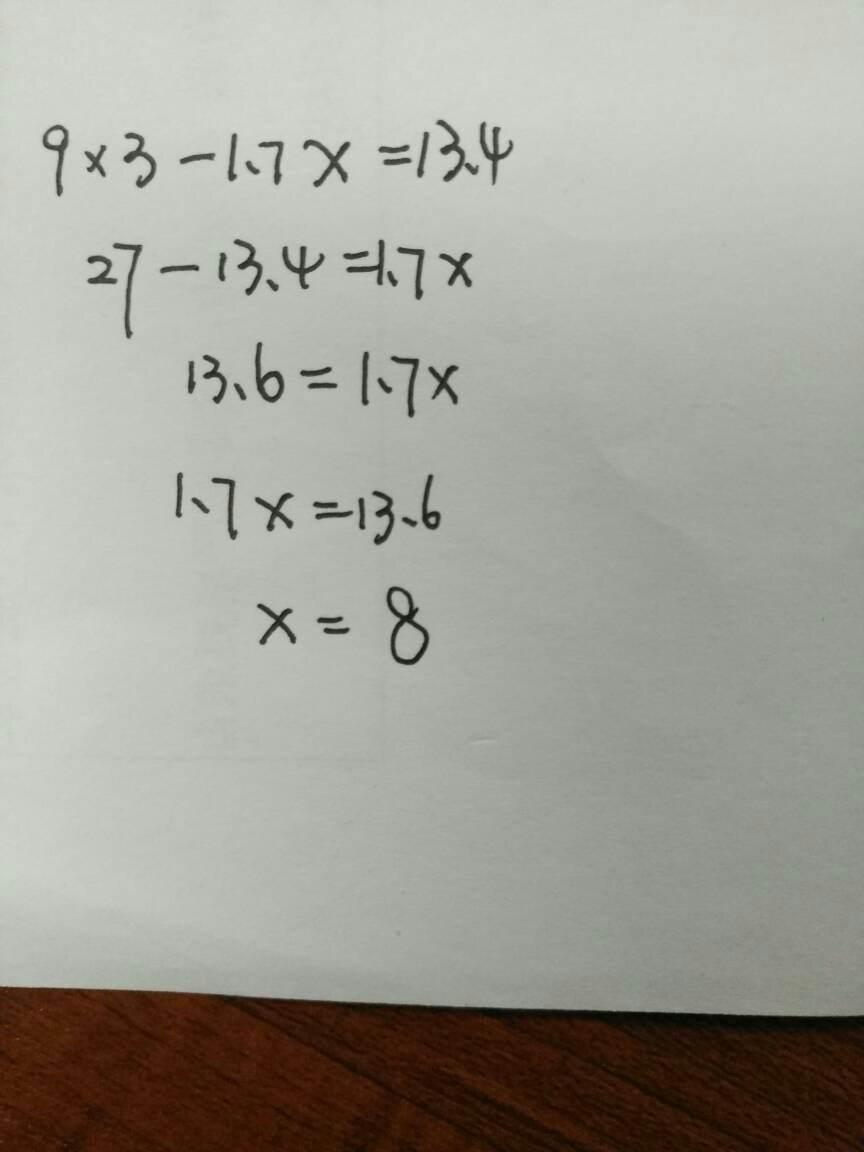 9×3-1.7x=13.4
27-13.4=1.7x
13.6=1.7x
1.7x=13.6
x=8